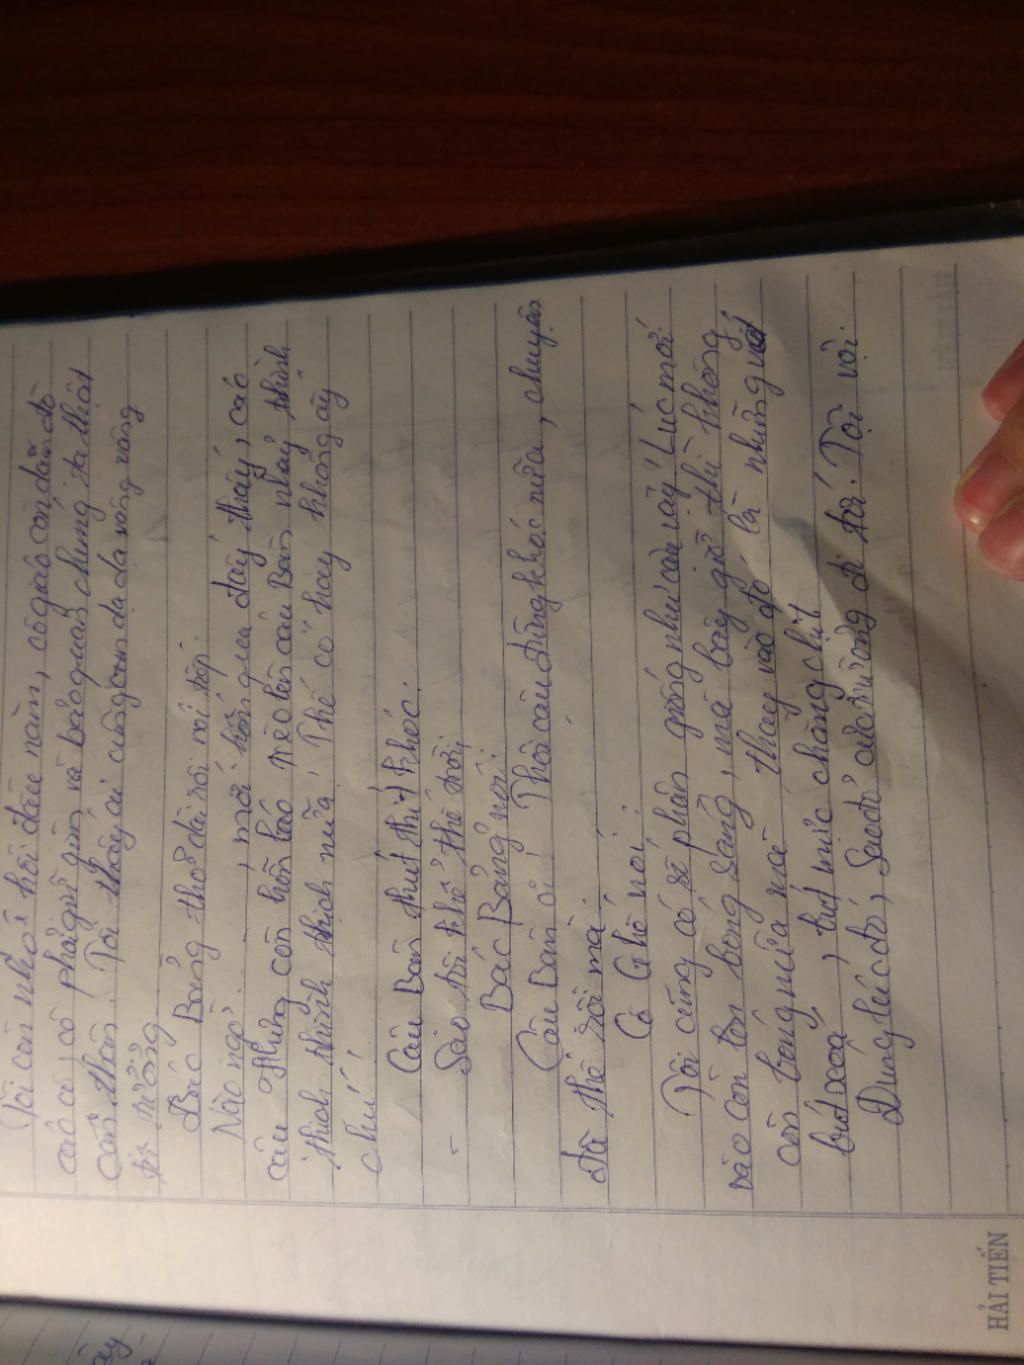 Tôi còn nhớ hồi đầu năm, cô giáo còn dặn dò
các cô, cô phải giữ gìn và bảo quản chúng ta thật
cẩn thận. Tôi thấy ai cũng dạ dạ vâng vâng
Bác Bảng thở dài rồi nói tiếp:
Nào ngờ, mới hôm qua đây thấy, các
cậu Hưng còn hò bảo mèo lên cậu Bàn nhảy
thình thình thích nữa. Thế có hay không ấy
chứ
Cậu Bàn thút thít khóc:
- Sao tôi khổ thế trời;
Bác Bảng nói:
Cậu Bàn ơi! Thôi cậu đừng khóc nữa, chuyện
đã thế rồi mà.
Cô Ghế nói:
Tôi cũng có số phận giống như cậu vậy! Lúc mới
vào còn lon bong sáng, mà bây giờ thì không
còn bóng nữa mà thay vào đó là những
bút xoá, bút mực chằng chịt
Đúng lúc đó, Sau đó cửa trường đi tới. Tội vội.
HẢI TIẾN